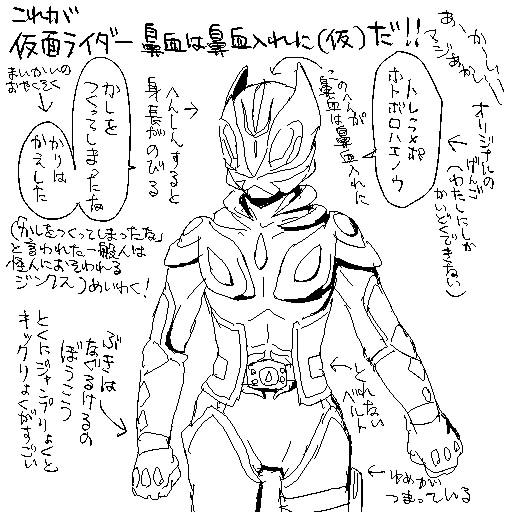 これが
仮面ライダー鼻血は鼻血入れに(仮)だ!!
あ、かーしいーー
マジあかしい
まいかいの
おやくそく
かしを
つくってしまったな
かりは
かえした
へんしんすると
身長がのびる
このへんが
鼻血は鼻血入れに
ハレラメポ
ホトボロハエノウ
オリジナルの
げんご
(わたしにしか
かいどくできない)
(「かしをつくってしまったな」
と言われた一般人は
怪人におそわれる
ジンクス)めいわく!
ぶきは
なぐるけるの
ぼうこう
とくにジャンプりょくと
キックりょくがすごい
とれない
ベルト
ゆめが
つまっている